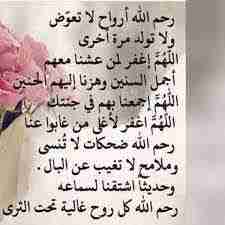 رحم الله أرواح لا تعوّض
ولا تولد مرة أخرى
اللهُمَّ إغفر لمن عشنا معهم
أجمل السنين وهزنا إليهم الحنين
اللهُمَّ إجمعنا بهم في جنتك
اللهُمَّ اغفر لأغلى من غابوا عنا
رحم الله ضحكات لا تُنسى
وملامح لا تغيب عن البال .
وحديثاً اشتقنا لسماعه
رحم الله كل روح غالية تحت الثرى